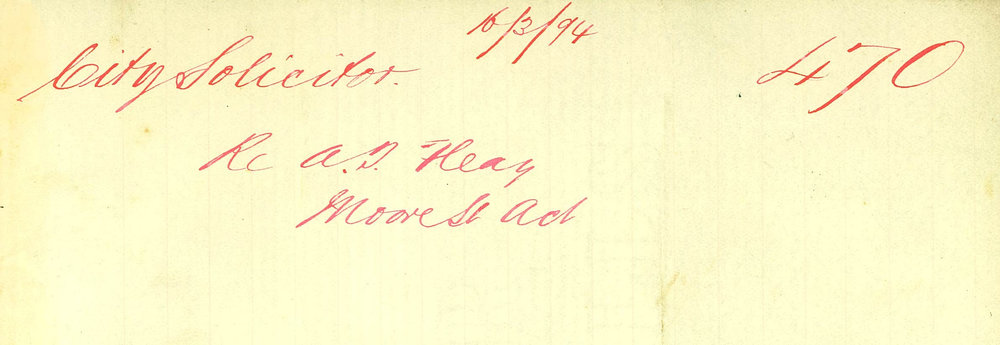 16/3/94
City Solicitor. 470
Re A. D. Heay
Moore St Act